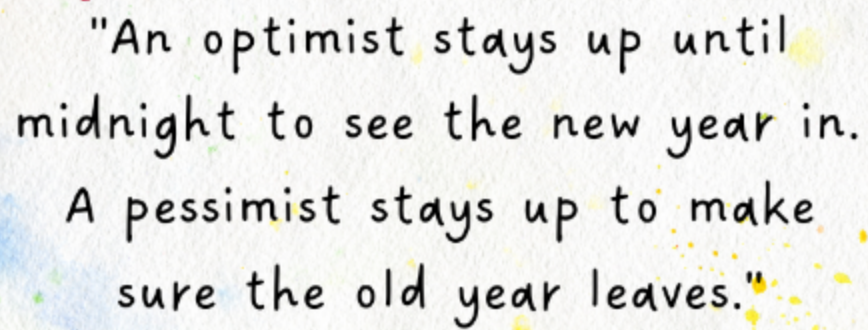 "An optimist stays up until
midnight to see the new year in.
A pessimist stays up to make
sure the old year leaves."